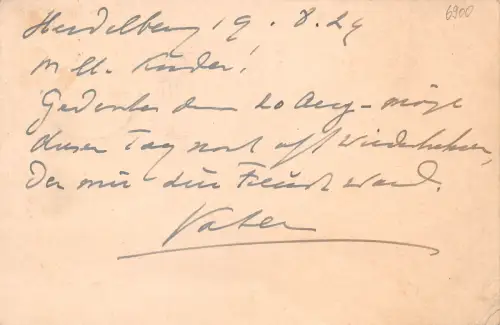 6900
Heidelberg 19.8.29
M. ll. Kinder!
Gedenket dem 20 Aug – möge
dieser Tag noch oft wiederkehren,
Der mir die Freud ward.
Vater